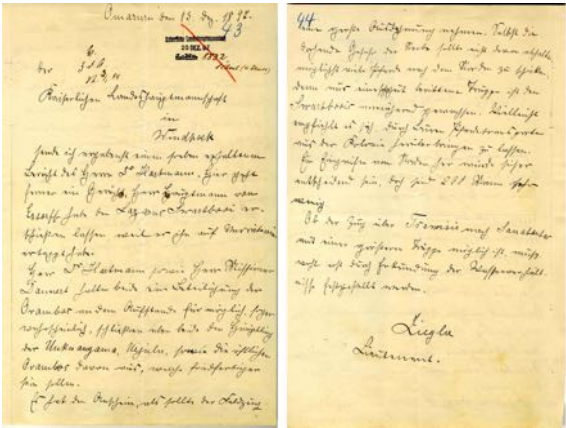 Omaruru den 13. Dez. 18
43
der
Kaiserlichen Landeshauptmannschaft
in
Windhoek
sende ich ergebenst einen soeben erhaltenen
Bericht des Herrn Dr. Hartmann. Hier geht
ferner ein Gerücht, Herr Hauptmann von
Estorff habe den Lazarus Swartbooi er-
schießen lassen weil er ihn auf
ertappt habe.
Herr Dr. Hartmann sowie Herr Missionar
Dannert halten beide eine Beteiligung der
Ovambos an dem Aufstande für möglich, sogar
wahrscheinlich, schließen aber beide den Häuptling
der sowie die östlichen
Ovambos davon aus, welche friedfertiger
sein sollen.
Es hat den Anschein, als sollte der Feldzug
44
eine große Ausdehnung nehmen. Selbst die
drohende Gefahr der Sterbe sollte nicht davon
möglichst viele Pferde nach dem Norden zu schicken,
denn nur eine gut berittene Truppe ist den
Swartboois annähernd gewachsen. Vielleicht
empfiehlt es sich, durch Pferdetransporte
aus der Kolonie herüberbringen zu lassen.
Ein Eingreifen von Norden her würde sicher
entscheidend sein, doch sind 200 Mann sehr
wenig
Ob der Zug über nach
mit einer größeren Truppe möglich ist, muß
wohl erst durch Erkundung der Wasserverhält-
nisse festgestellt werden.
Lieutenant.